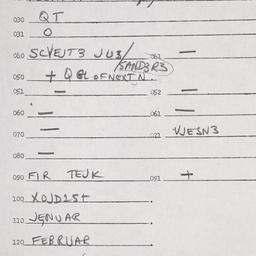 030 QT
031 O
040 SCVEJT3 JU3/ 041 —
SANDBR3
050 + Q GL OF NEXT N.
051 — 052 —
060 — 061 —
070 — 071 VJESN3
080 —
090 FIR TEJK 091 +
100 XOJD1St .
110 JENUAR .
120 FEBRUAR .